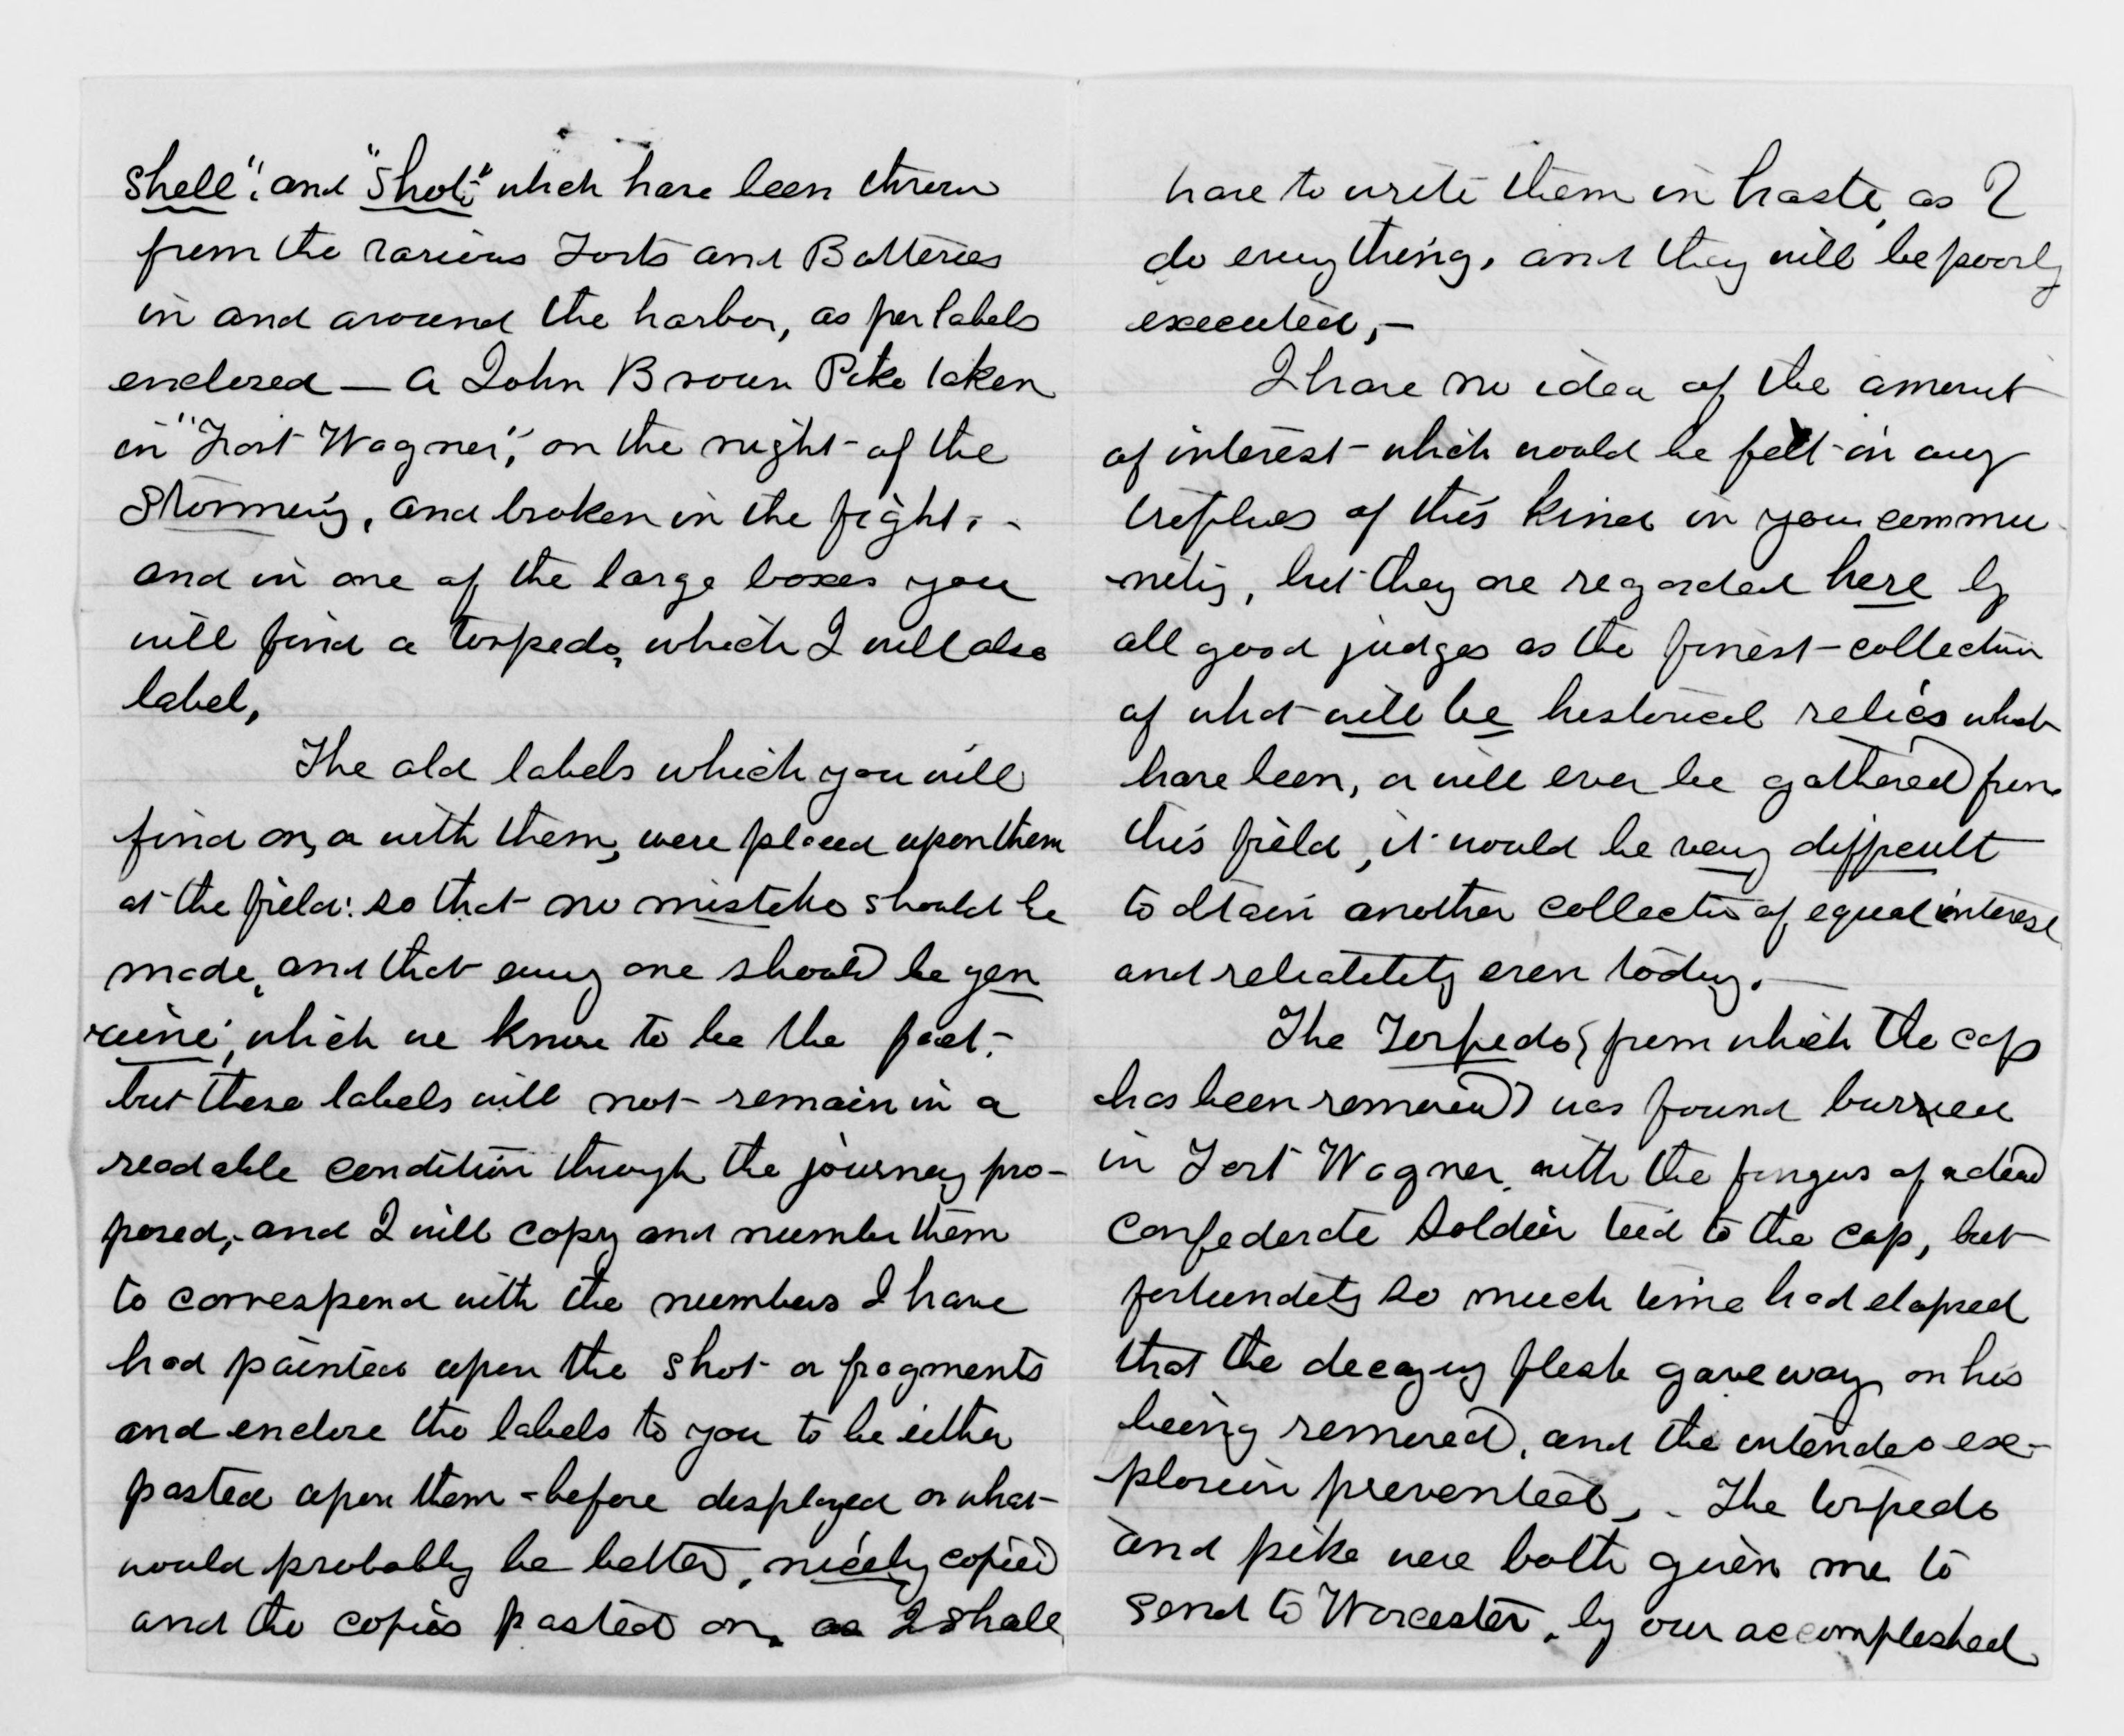 shell", and "shot," which have been thrown
from the various Forts and Batteries
in and around the harbor, as per labels
enclosed — a John Brown Pike taken
in "Fort Wagner", on the night of the
Storming, and broken in the fight, -
and in one of the large boxes you
will find a torpedo, which I will also
label,
The old labels which you will
find on, or with them, were placed upon them
at the field: so that no mistake should be
made, and that every one should be gen
uine, which we know to be the fact, -
but these labels will not remain in a
readable condition through the journey pro-
posed, - and I will copy and number them
to correspond with the numbers I have
had painted upon the shot or fragments
and enclose the labels to you to be either
pasted upon them - before displayed or what
would probably be better, nicely copied
and the copies pasted on, as I shall
have to write them in haste, as I
do everything, and they will be poorly
executed, —
I have no idea of the amount
of interest which would be felt in any
trophies of this kind in your commu
-nity, but they are regarded here by
all good judges as the finest collection
of what will be historical relics which
have been, or will ever be gathered from
this field, it would be very difficult
to obtain another collection of equal interest
and reliability even today. —
The Torpedo, (from which the cap
has been removed) was found buried
in Fort Wagner, with the fingers of a dead
confederate soldier tied to the cap, but
fortunately so much time had elapsed
that the decaying flesh gave way on his
being removed, and the intended ex-
plosion prevented, - The torpedo
and pike were both given me to
send to Worcester, by our accomplished